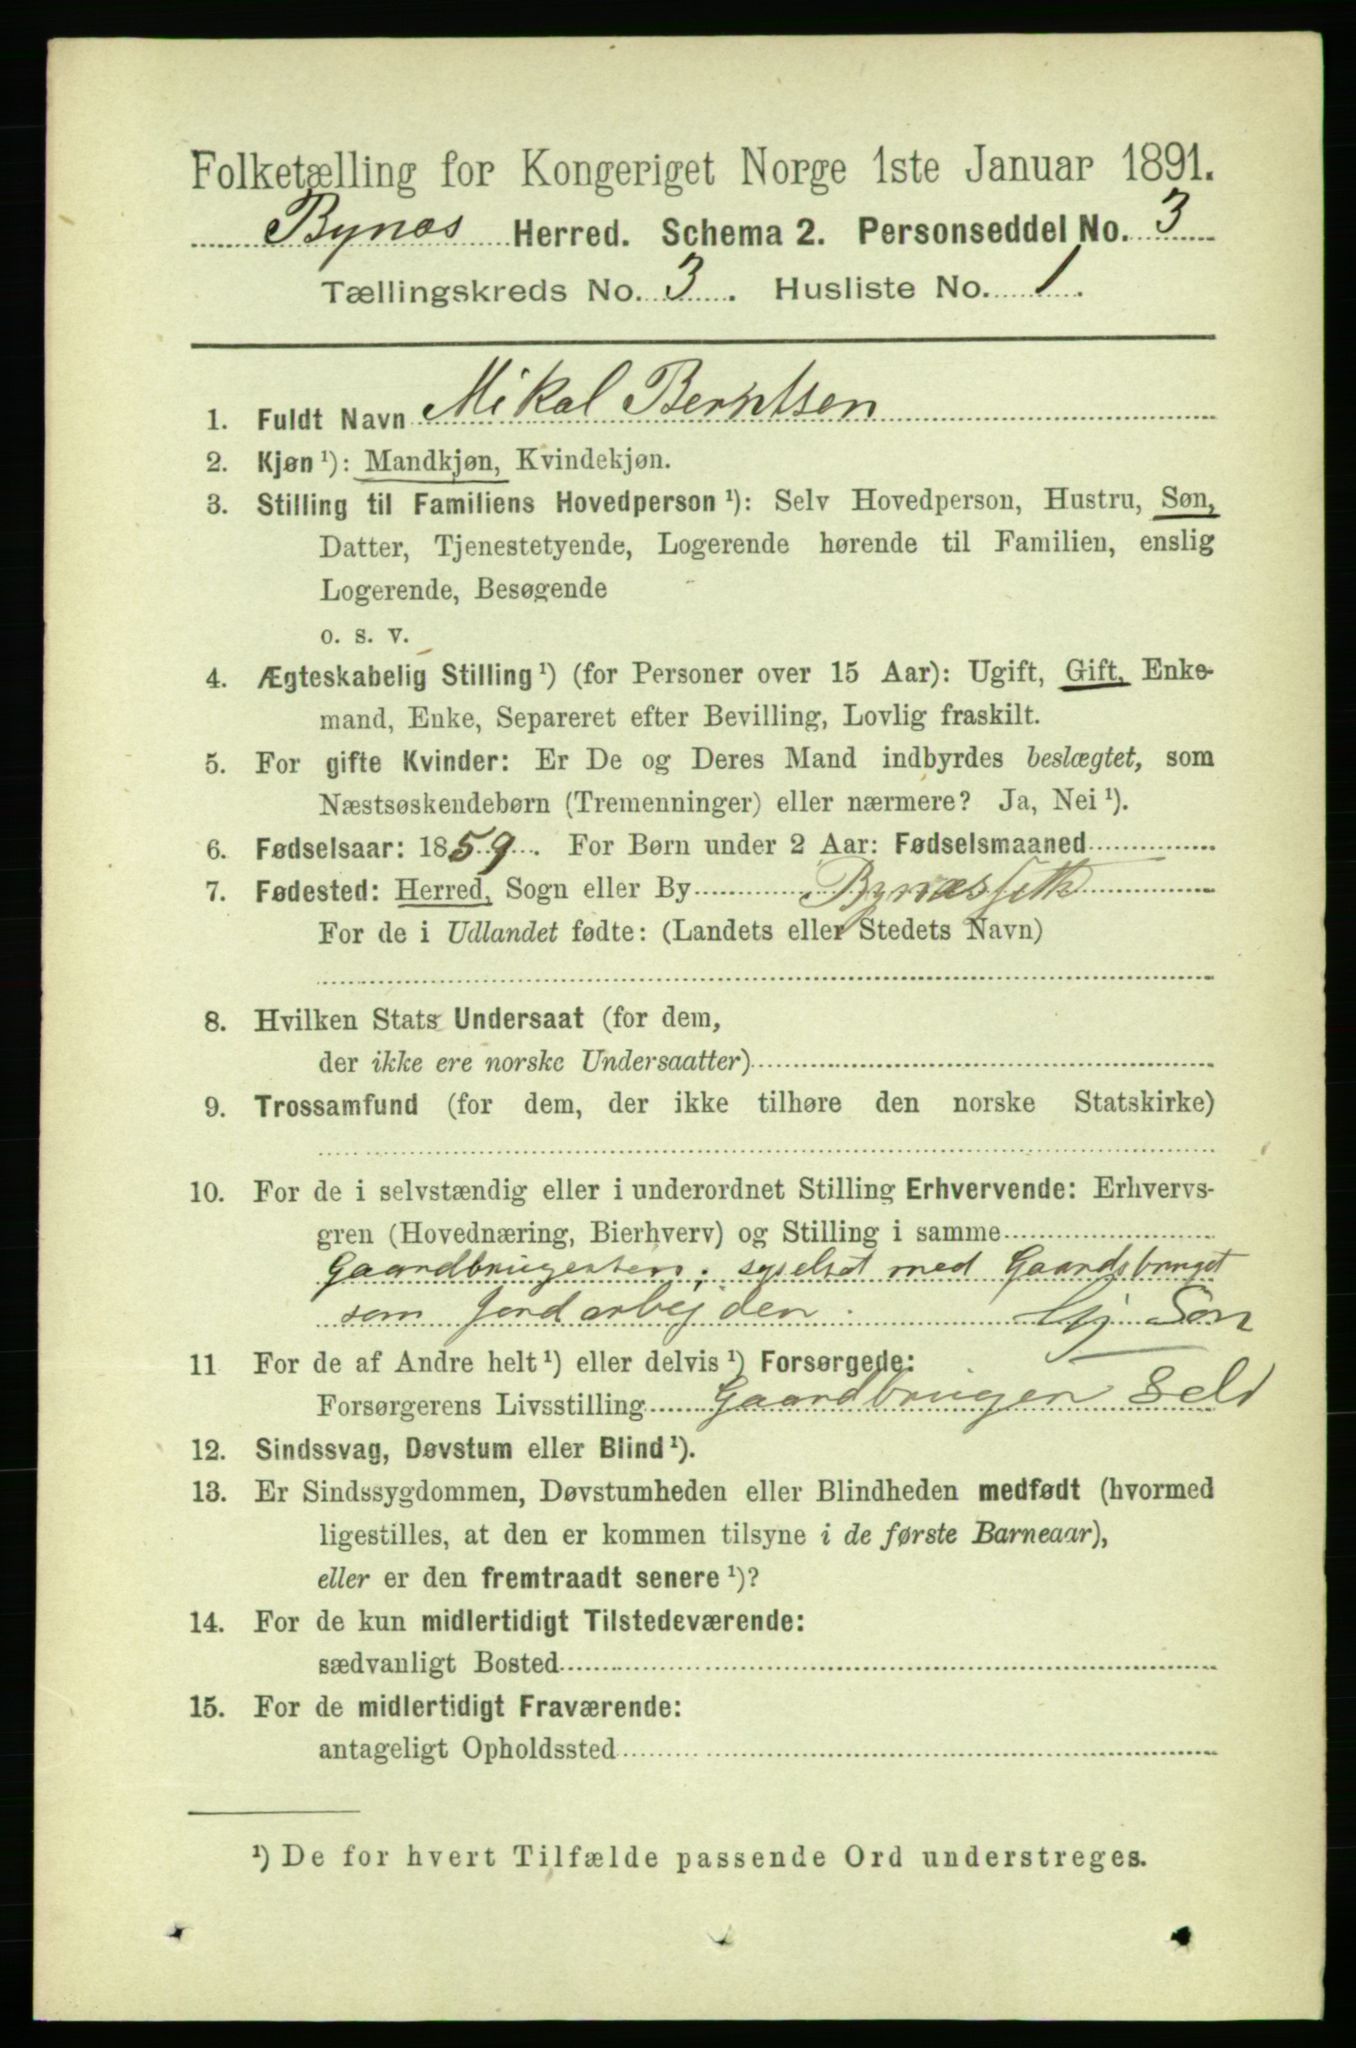 Folketælling for Kongeriget Norge 1ste Januar 1891.
Bynæs Herred. Schema 2. Personseddel No. 3
Tællingskreds No. 3. Husliste No. 1.
1. Fuldt Navn Mikal Berntsen
2. Kjøn ¹): Mandkjøn, Kvindekjøn.
3. Stilling til Familiens Hovedperson ¹): Selv Hovedperson, Hustru, Søn,
Datter, Tjenestetyende, Logerende hørende til Familien, enslig
Logerende, Besøgende
o. s. v.
4. Ægteskabelig Stilling ¹) (for Personer over 15 Aar): Ugift, Gift, Enke-
mand, Enke, Separeret efter Bevilling, Lovlig fraskilt.
5. For gifte Kvinder: Er De og Deres Mand indbyrdes beslægtet, som
Næstsøskendebørn (Tremenninger) eller nærmere? Ja, Nei ¹).
6. Fødselsaar: 1859. For Børn under 2 Aar: Fødselsmaaned
7. Fødested: Herred, Sogn eller By
For de i Udlandet fødte: (Landets eller Stedets Navn)
8. Hvilken Stats Undersaat (for dem,
der ikke ere norske Undersaatter)
9. Trossamfund (for dem, der ikke tilhøre den norske Statskirke)
10. For de i selvstændig eller i underordnet Stilling Erhvervende: Erhvervs-
gren (Hovednæring, Bierhverv) og Stilling i samme
med Gaardsbruget
som Jordarbejden. Gj. Søn
11 For de af Andre helt ¹) eller delvis ¹) Forsørgede:
Forsørgerens Livsstilling Gaardbrugen Selv
12. Sindssvag, Døvstum eller Blind ¹).
13. Er Sindssygdommen, Døvstumheden eller Blindheden medfødt (hvormed
ligestilles, at den er kommen tilsyne i de første Barneaar),
eller er den fremtraadt senere ¹)?
14. For de kun midlertidigt Tilstedeværende:
sædvanligt Bosted
15. For de midlertidigt Fraværende:
antageligt Opholdssted
¹) De for hvert Tilfælde passende Ord understreges.